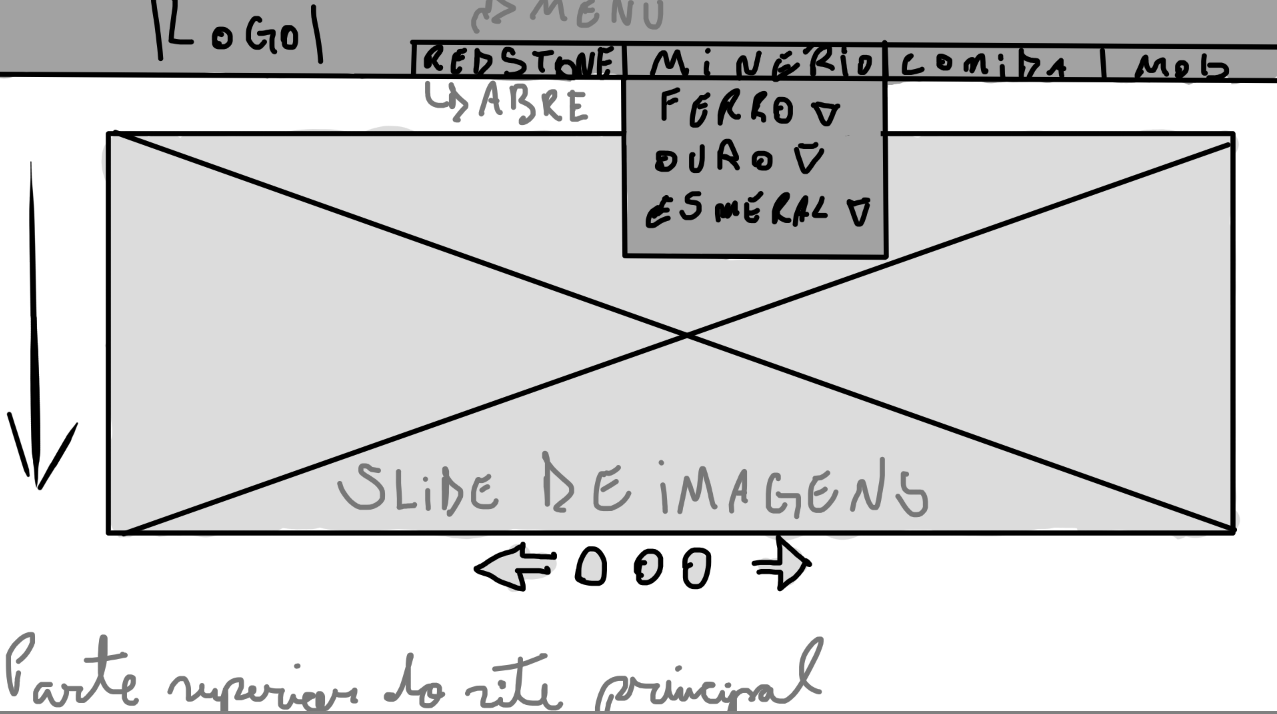 |LOGO|
MENU
REDSTONE MINÉRIO COMIDA MOB
ABRE
FERRO
OURO
ESMERAL
SLIDE DE IMAGENS
Parte superior do site principal